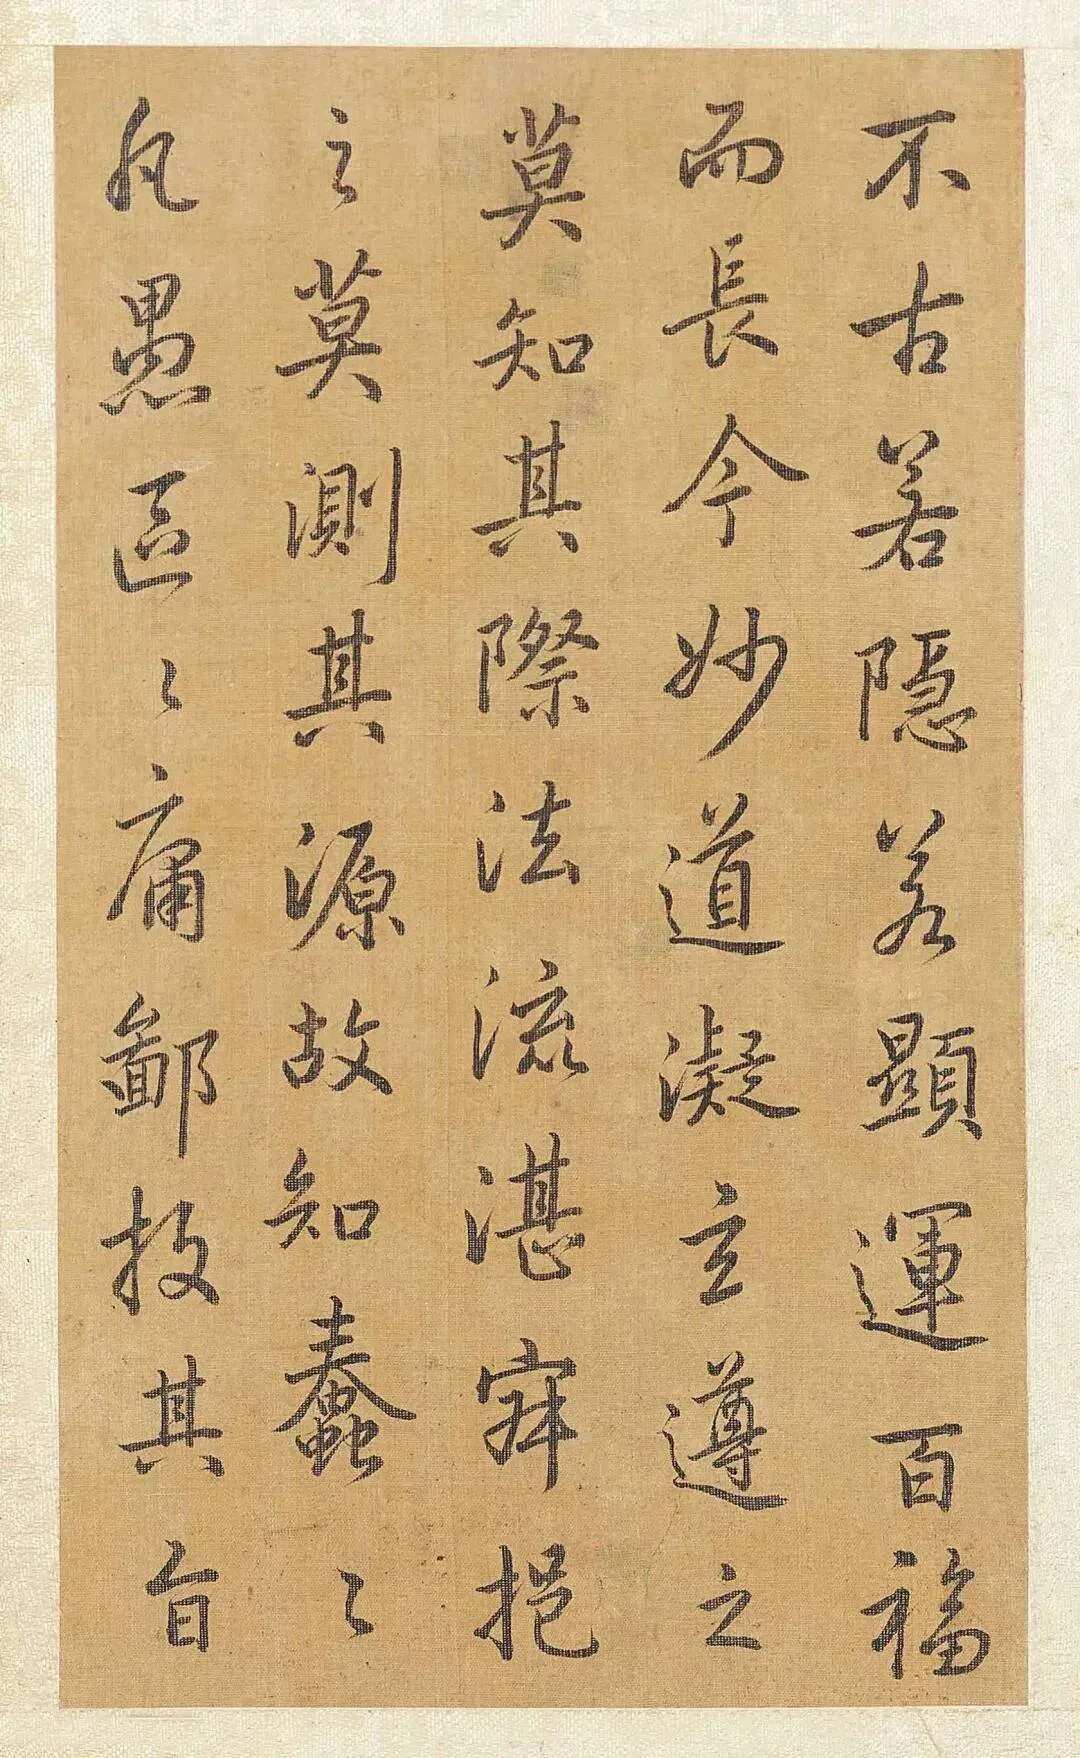 不古若隱若顯運百福
而長今妙道凝玄遵之
莫知其際法流湛寂挹
之莫測其源故知蠢〻
凡愚區〻庸鄙投其旨